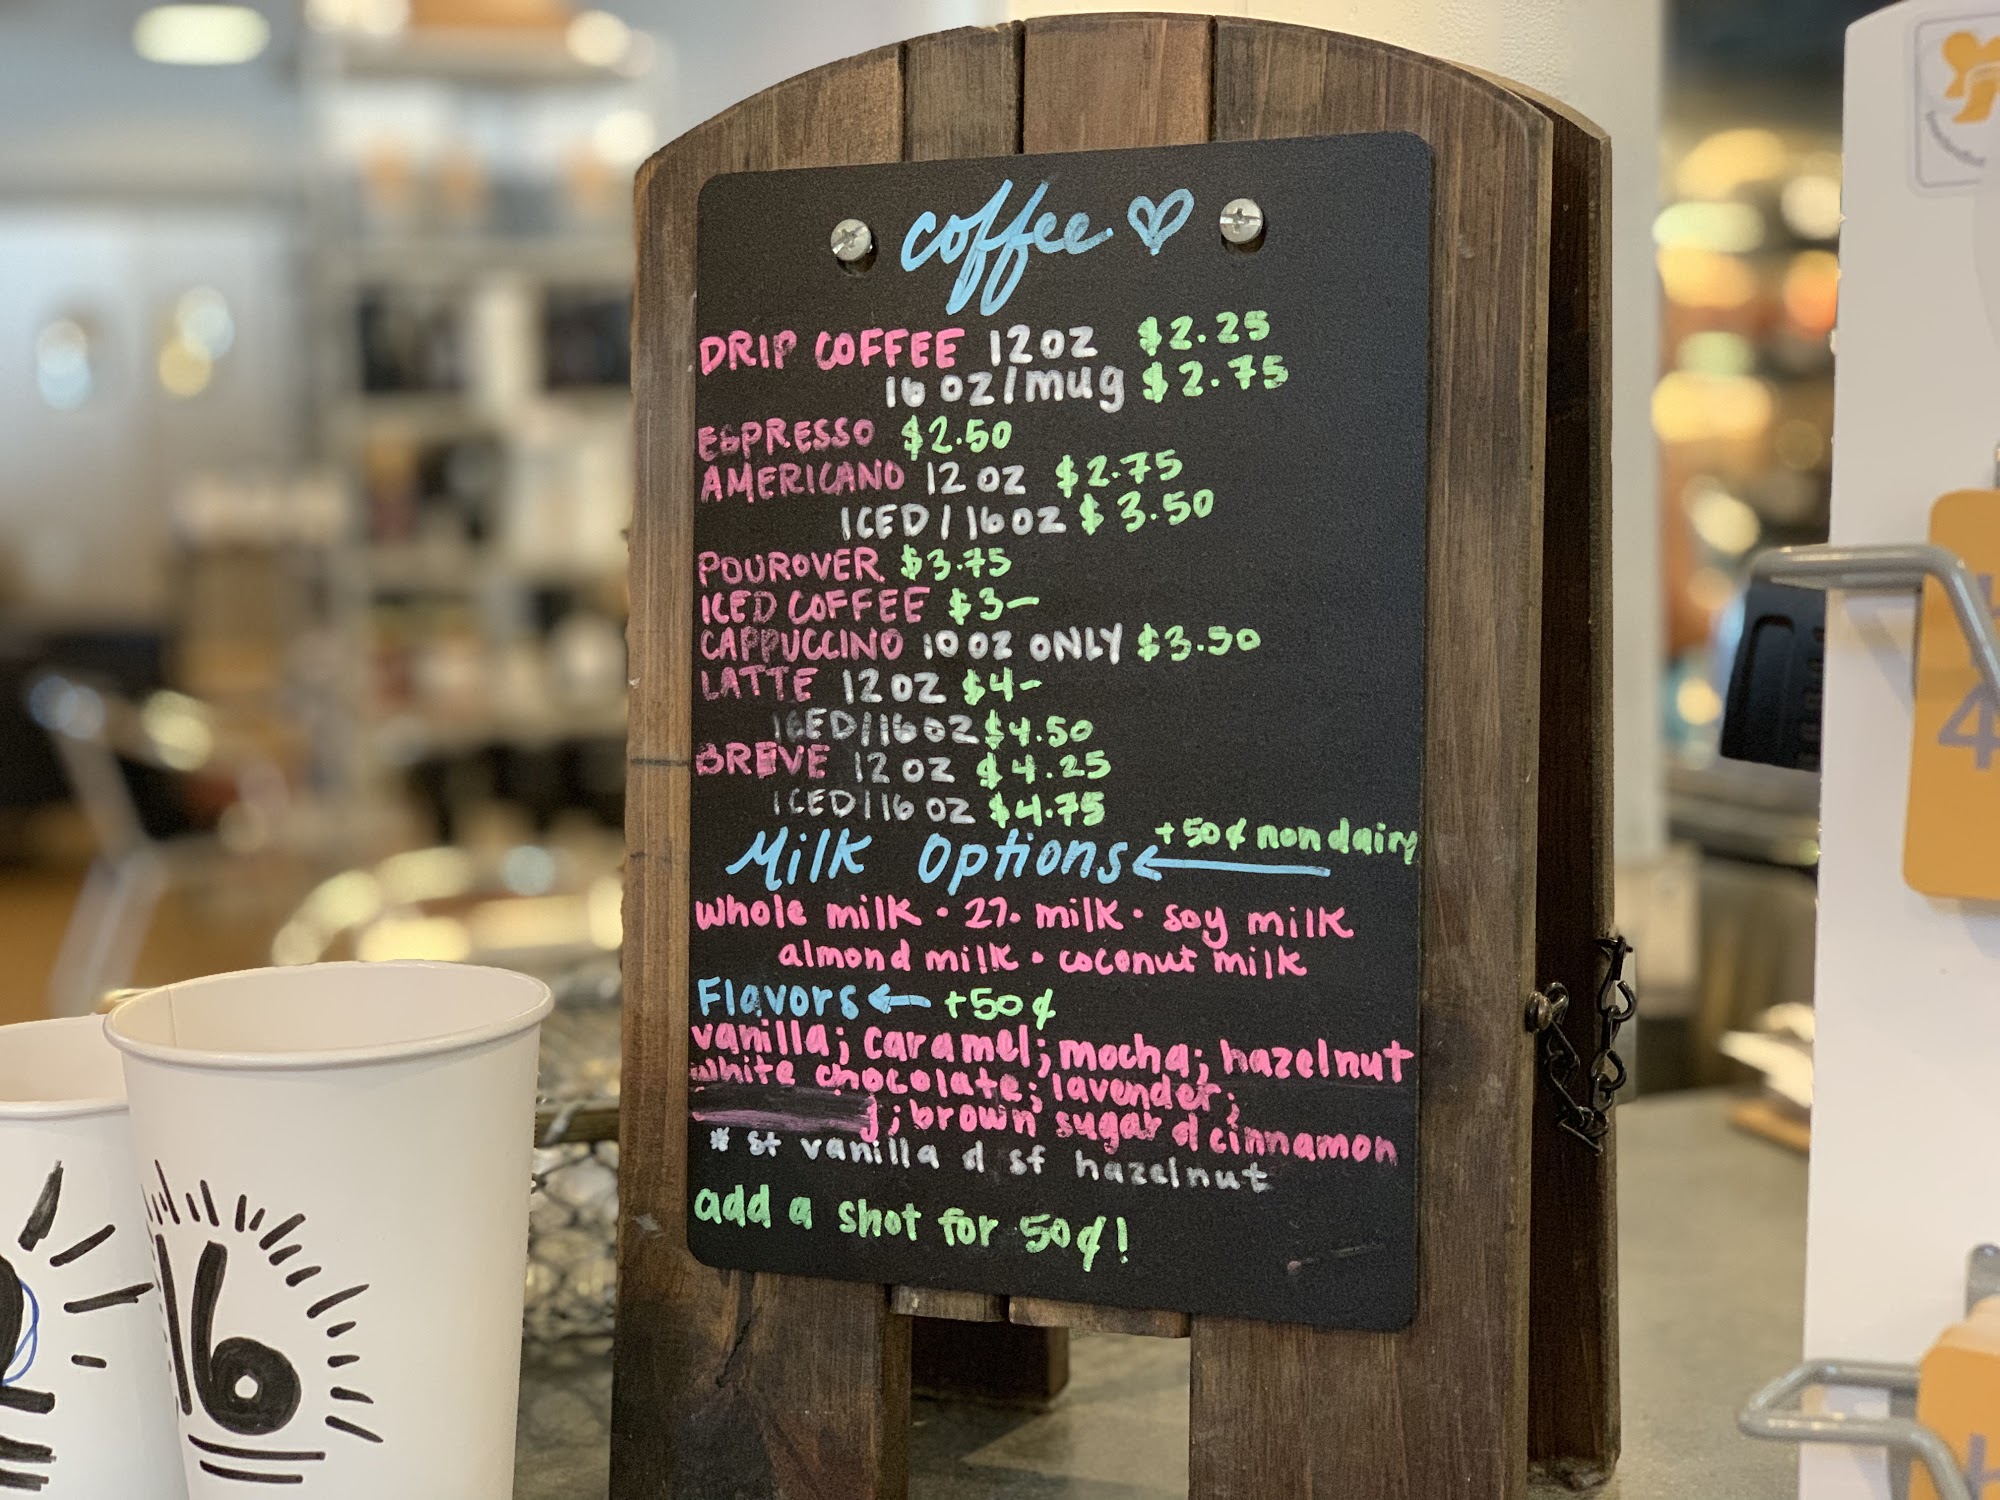 coffee
DRIP COFFEE 12 OZ $2.25
16 OZ/mug $2.75
ESPRESSO $2.50
AMERICANO 12 OZ $2.75
ICED/16OZ $3.50
POUROVER $3.75
ICED COFFEE $3-
CAPPUCCINO 10 OZ ONLY $3.50
LATTE 12 OZ $4-
ICED/16OZ $4.50
BREVE 12 OZ $4.25
ICED/16 OZ $4.75
+50¢ nondairy
Milk Options
whole milk · 2% milk · soy milk
almond milk · coconut milk
Flavors ← +50¢
vanilla; caramel; mocha; hazelnut
white chocolate; lavender;
; brown sugar & cinnamon
* sf vanilla & sf hazelnut
add a shot for 50¢!
16
4